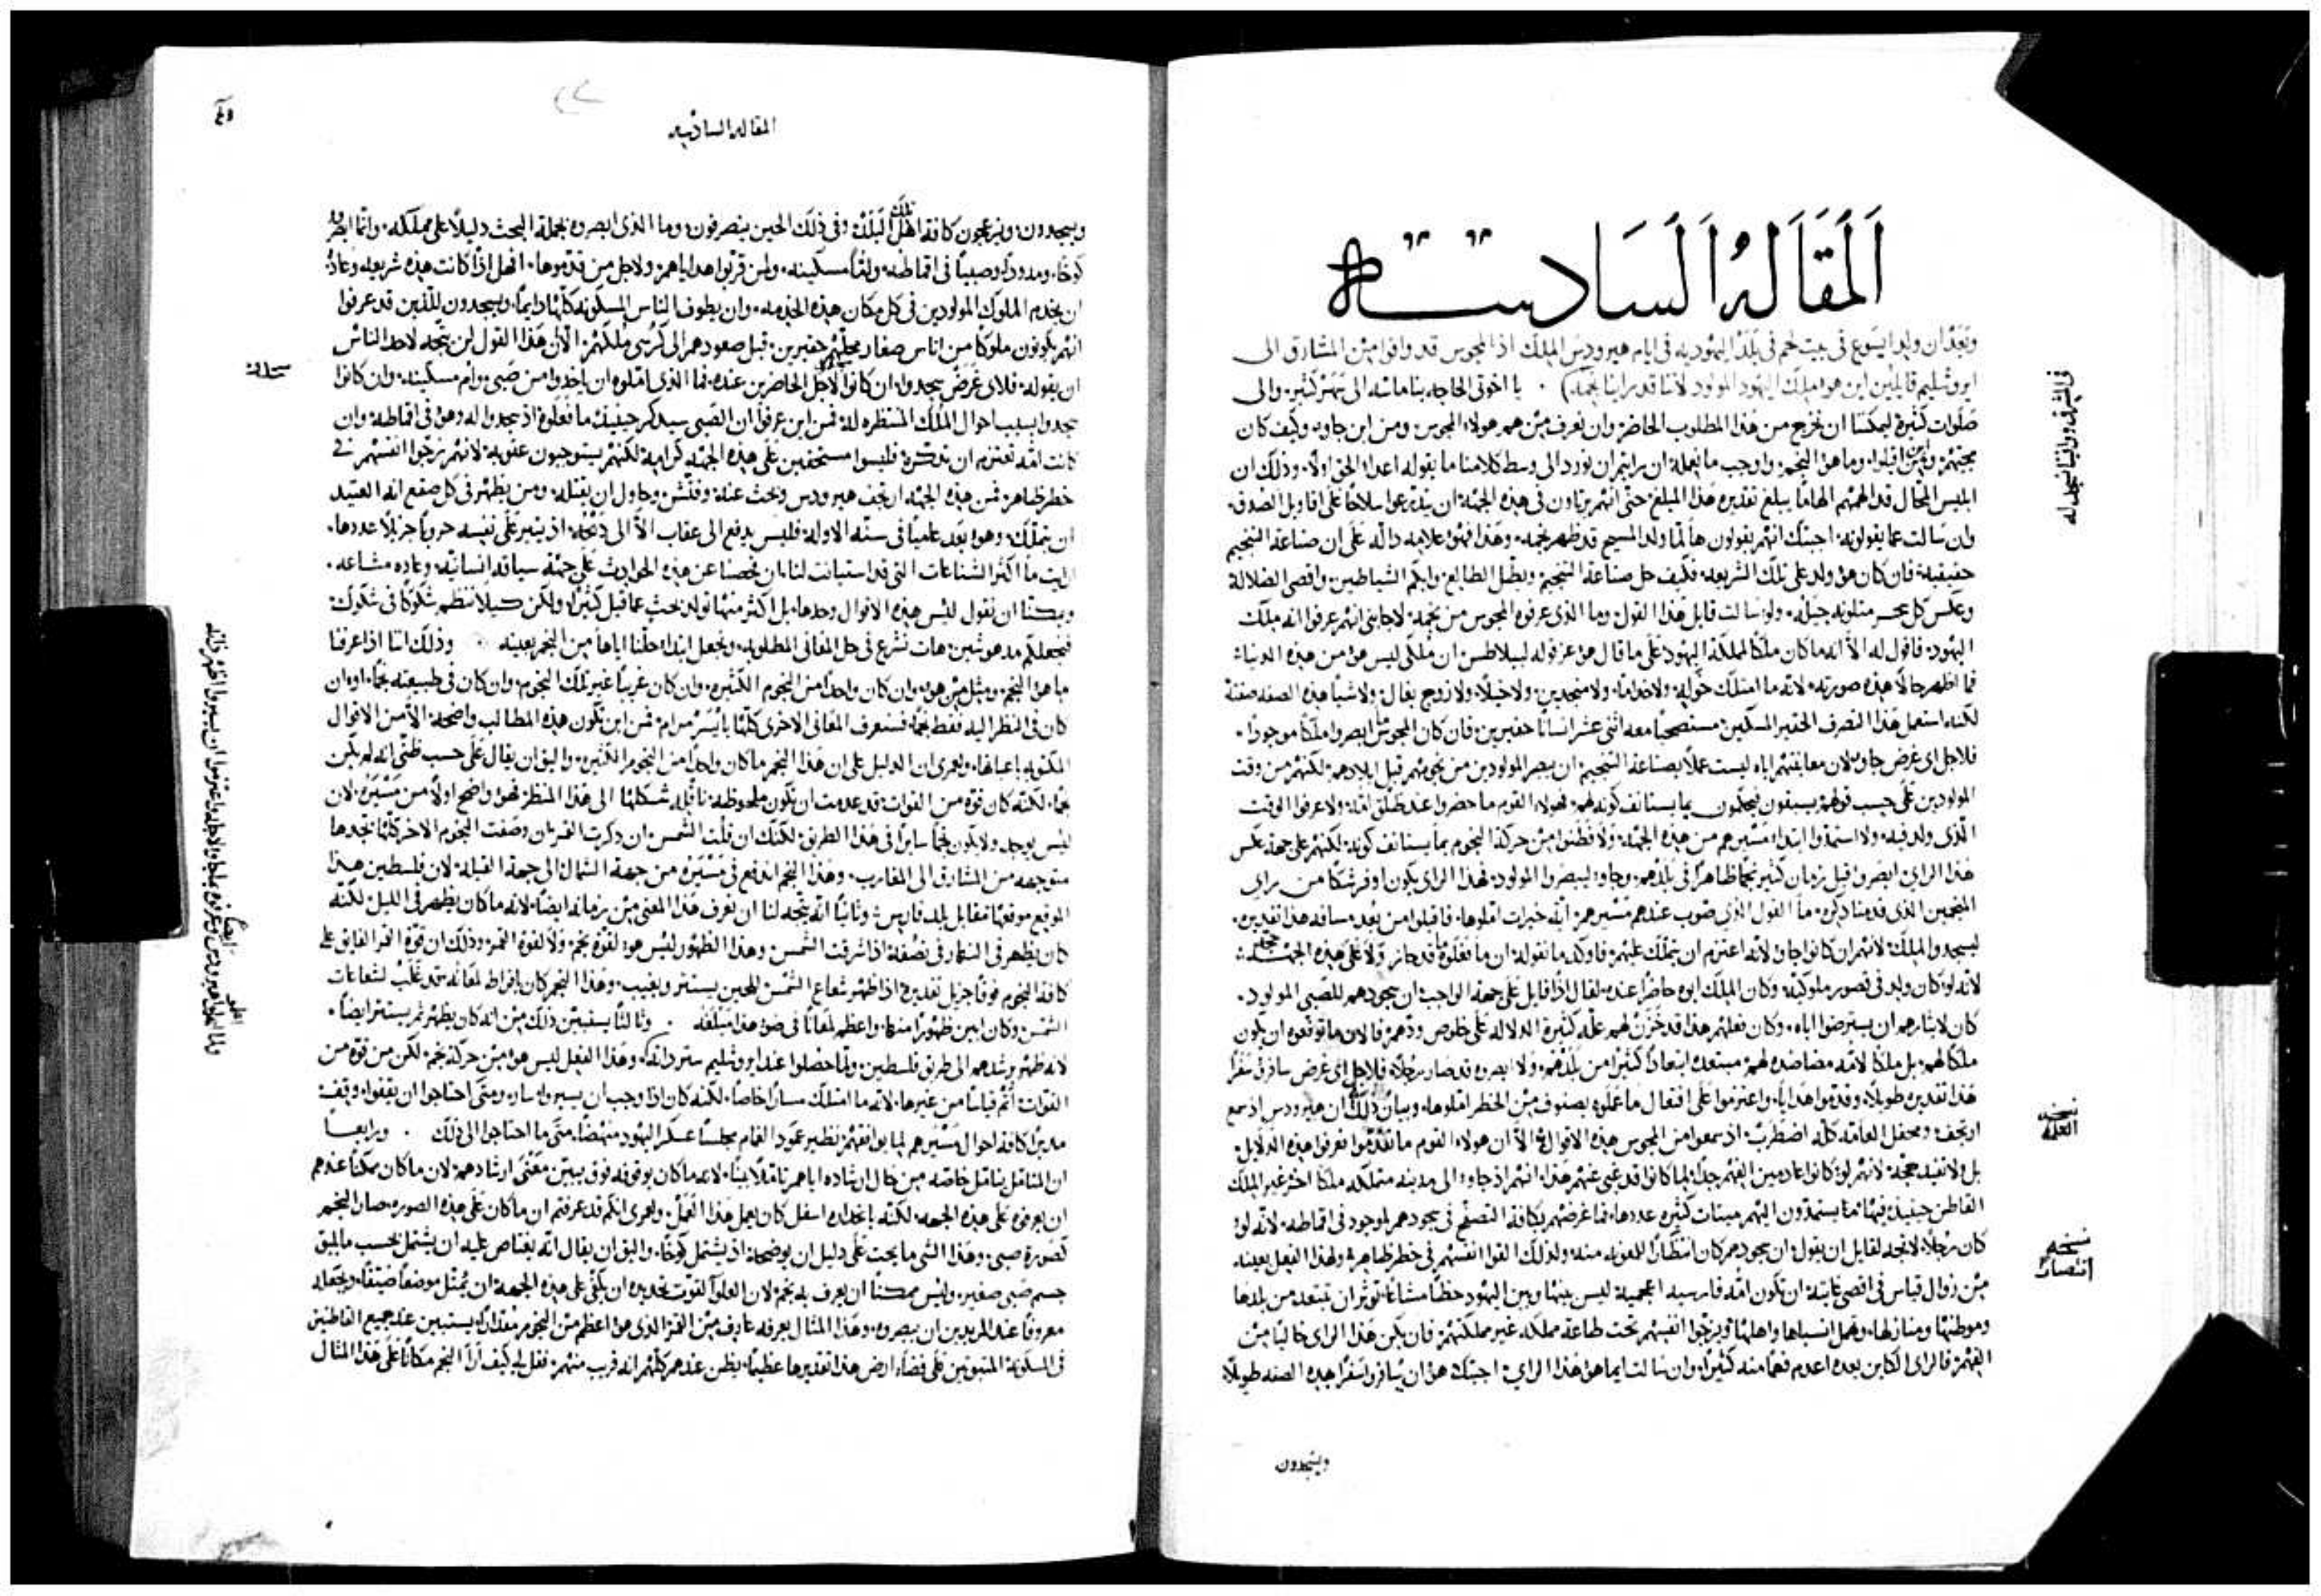 المقالة السادسة
وبعد ان ولد ايسوع في بيت لحم في بلد اليهودية في ايام هيرودس الملك اذا المجوس قد وافوا من المشارق الى
ايروشليم قايلين اين هو ملك اليهود المولود لاننا قد راينا نجمه . يا اخوتي الحاجه بنا ماسه الى تسهر كثير والى
صلوات كثيرة ليمكننا ان نخرج من هذا المطلوب الحاضر وان نعرف من هم هولاء المجوس ومن اين جاوا وكيف كان
مجيهم وما هو النجم واوجب ما نعمله ان رايتم ان نورد الى وسط كلامنا ما يقوله اعداء الحق اولا وذلك ان
ابليس المحال قد الهمهم الهاما يبلغ تقديره هذا المبلغ حتى انهم يرتاون في هذه الجهة ان يتدرعوا سلاحا على اقاويل الصدق
وان سالت عما يقولونه اجبتك انهم يقولون ها لما ولد المسيح قد ظهر نجمه وهذا فهو علامه داله على ان صناعة التنجيم
حقيقية فان كان هو ولد على تلك الشريعه فكيف حل صناعة التنجيم وبطل الطالع وابكم الشياطين واقصى الضلالة
وعكس كل سحر ولو سالت قايل هذا القول وما الذي عرفوه المجوس من نجمه لاجابني انهم عرفوا انه ملك
اليهود فاقول له الا انه ما كان ملكا لمملكة اليهود على ما قال هو عز قوله لبيلاطس ان ملكي ليس هو من هذه الدنيا
فما اظهر حالا هذه صورته لانه ما امتلك حوله ولا خداما ولا منجدين ولا خيلا ولا زوج بغال ولا شيا هذه الصفه صفته
لكنه استعمل هذا التصرف الحقير المسكين مستصحبا معه اثنى عشر انسانا حقيرين فان كان المجوس ابصروا ملكا موجودا
فلاجل اي غرض جاوه لان معاينتهم اياه ليست عملا بصناعة التنجيم ان يبصر المولودين من نجومهم قبل ايلادهم لكنهم من وقت
المولودين على حسب قولهم يسبقون فيحكمون بما يستانف كونه لهم فهولاء القوم ما حضروا عند طلق امه ولا عرفوا الوقت
الذي ولد فيه ولا استمدوا ابتداء مسيرهم من هذه الجهة ولا فطنوا من حركة النجوم بما يستانف كونه لكنهم على جهة عكس
هذا الراي ابصروا قبل زمان كثير نجما ظاهرا في بلدهم وجاوا ليبصروا المولود فهذا الراي يكون اوفر شكا من راي
المنجمين الذي قدمنا ذكره ما القول الذي صوب عندهم مسيرهم اية خيرات املوها فاقبلوا من بعد مسافه هذا تقديره
ليسجدوا للملك لانهم ان كانوا جاوا لانه اعتزم ان يتملك عليهم فاوكد ما نقوله ان ما فعلوه قد حاز ولا على هذه الجهة حجه
لانه لو كان ولد في قصور ملوكيه وكان الملك ابوه حاضرا عنده لقال اذا قايل على جهة الواجب ان سجودهم للصبي المولود
كان لايثارهم ان يسترضوا اباه وكان فعلهم هذا قد خزن لهم علة كثيرة الدلاله على خلوص ودهم فالان ما توقعوه ان يكون
ملكا لهم بل ملكا لامه مضاضده لهم مبتعده ابتعادا كثيرا من بلدهم ولا ابصروه قد صار رجلا فلاجل اي غرض سافروا سفرا
هذا تقديره طويلا وقدموا هدايا واعتزموا على افتعال ما عملوه بصنوف من الخطر املوها وبيان ذلك ان هيرودس اذ سمع
ارتجف ومحفل العامه كله اضطرب اذ سمعوا من المجوس هذه الاقوال الا ان هولاء القوم ما تقدموا فعرفوا هذه الدلايل
كان رجلا لاتجه لقايل ان يقول ان سجودهم كان انتظارا للمعونه منه ولذلك القوا انفسهم في خطر ظاهر وهذا الفعل بعينه
من زوال قياس في اقصى غايته ان تكون امه فارسيه اعجميه ليس بينها وبين اليهود حظا مشاعا توثر ان تبتعد من بلدها
وموطنها ومنازلها وتهمل انسباها واهلها ويزجوا انفسهم تحت طاعة مملكه غير مملكتهم فان يكن هذا الراي خاليا من
الفهم فالراي الكاين بعده اعدم فهما منه كثيرا وان سالت ايما هو هذا الراي اجبتك هو ان يسافروا سفرا هذه الصفه طويلا
ويسجدون
في المشرق واتينا لنسجد له
نسخه
العلة
نسخه
انتصار
المقاله السادسه
ويسجدون ويزعجون كافة اهل تلك البلدة وفي ذلك الحين ينصرفون وما الذي ابصروه بجملة البحث دليلا على مملكه وانما ابصروا
كوخا ومدودا وصبيا في اقماطه واما مسكينه ولمن قربوا هداياهم ولاجل من قدموها افهل اذا كانت هذه شريعه وعاده
ان يخدم الملوك المولودين في كل مكان هذه الخدمه وان يطوف الناس المسكونه كلها دايما ويسجدون للذين قد عرفوا
انهم يكونون ملوكا من اناس صغار محلهم حقيرين قبل صعودهم الى كرسي ملكهم الا ان هذا القول لن يتجه لاحد الناس
ان يقوله فلاي غرض سجدوا ان كانوا لاجل الحاضرين عنده فما الذي املوه ان ياخذوا من صبي وام مسكينه وان كانوا
سجدوا بسبب احوال الملك المنتظره له فمن اين عرفوا ان الصبي سيذكر حينيذ ما فعلوه اذ سجدوا له وهو في اقماطه وان
كانت امه تعتزم ان تذكره فليسوا مستحقين على هذه الجهة كرامة لكنهم يستوجبون عقوبه لانهم زجوا انفسهم في
خطر ظاهر فمن هذه الجهة ارتجف هيرودس وبحث عنه وفتش وحاول ان يقتله ومن يظهر في كل صقع انه العتيد
ان يتملك وهو بعد عاميا في سنه الاوله فليس يدفع الى عقاب الا الى ذبحه اذ يثير على نفسه حروبا جزيلا عددها
ارايت ما اكثر الشناعات التي قد استبانت لنا ان فحصنا عن هذه الحوادث على جهة سياقه انسانيه وعاده مشاعه
ويمكننا ان نقول ليس هذه الاقوال وحدها بل اكثر منها تولد بحث عما قيل كثيرا ولكن كيلا ننظم شكوكا في شكوك
فنجعلكم مدهوشين هات نشرع في حل المعاني المطلوبه ونجعل ابتدا حلنا اياها من النجم بعينه وذلك اننا اذا عرفنا
ما هو النجم ومثل من هو وان كان واحدا من النجوم الكثيره وان كان غريبا غير تلك النجوم وان كان في طبيعته نجما او ان
كان في المنظر اليه فقط نجما فسنعرف المعاني الاخرى كلها بايسر مرام فمن اين تكون هذه المطالب واضحة الا من الاقوال
المكتوبه باعيانها ولعمري ان الدليل على ان هذا النجم ما كان واحدا من النجوم الكثيره واليق ان يقال على حسب ظني انه لم يكن
نجما لكنه كان قوه من القوات قد عدمت ان تكون ملحوظه ناقله شكلها الى هذا المنظر فهو واضح اولا من مسيره لان
ليس يوجد ولا يكون نجما سايرا في هذا الطريق لكنك ان قلت الشمس وان ذكرت القمر وان وصفت النجوم الاخر كلها نجدها
متوجهه من المشارق الى المغارب وهذا النجم اندفع في مسيره من جهة الشمال الى جهة القبلة لان فلسطين هذا
الموقع موقعها مقابل بلد فارس وثانيا انه يتجه لنا ان نعرف هذا المعنى من زمانه ايضا لانه ما كان يظهر في الليل لكنه
كان يظهر في النهار في نصفه اذا شرقت الشمس وهذا الظهور ليس هو لقوة نجم ولا لقوة القمر وذلك ان قوة القمر الفايق على
كافة النجوم فوقا جزيل تقديره اذا ظهر شعاع الشمس للحين يستتر ويغيب وهذا النجم كان بافراط لمعانه قد غلب لشعاعات
الشمس وكان ابين ظهورا منها واعظم لمعانا في ضو هذا مبلغه . وثالثا يستبين ذلك من انه كان يظهر ثم يستتر ايضا
لانه ظهر يرشدهم الى طريق فلسطين ولما حصلوا عند ايروشليم ستر ذاته وهذا الفعل ليس هو من حركة نجم لكن من قوه من
القوات اتم قياسا من غيرها لانه ما امتلك مسارا خاصا لكنه كان اذا وجب ان يسيروا سار ومتى احتاجوا ان يقفوا وقف
مدبرا كافة احوال مسيرهم لما يوافقهم نظير عمود الغمام مجلسا عسكر اليهود منهضا متى ما احتاجوا الى ذلك . ورابعا
ان يعرفوه على هذه الجهه لكنه بانحداره اسفل كان يعمل هذا العمل ولعمري انكم قد عرفتم ان ما كان على هذه الصوره صار النجم
جسم صبي صغير وليس ممكنا ان يعرف به نجم لان العلو الفوت تحديده ان يكفي على هذه الجهه ان يمثل موضعا ضيقا ويجعله
معروفا عند المريدين ان يبصروه وهذا المثال يعرفه عارف من القمر الذي هو اعظم من النجوم مقدارا يستبين عند جميع القاطنين
في المسكونة المنبوثين على فضاء ارض هذا تقديرها عظيما يظن عندهم كلهم انه قريب منهم فقل لي كيف ارا النجم مكانا على هذا المثال